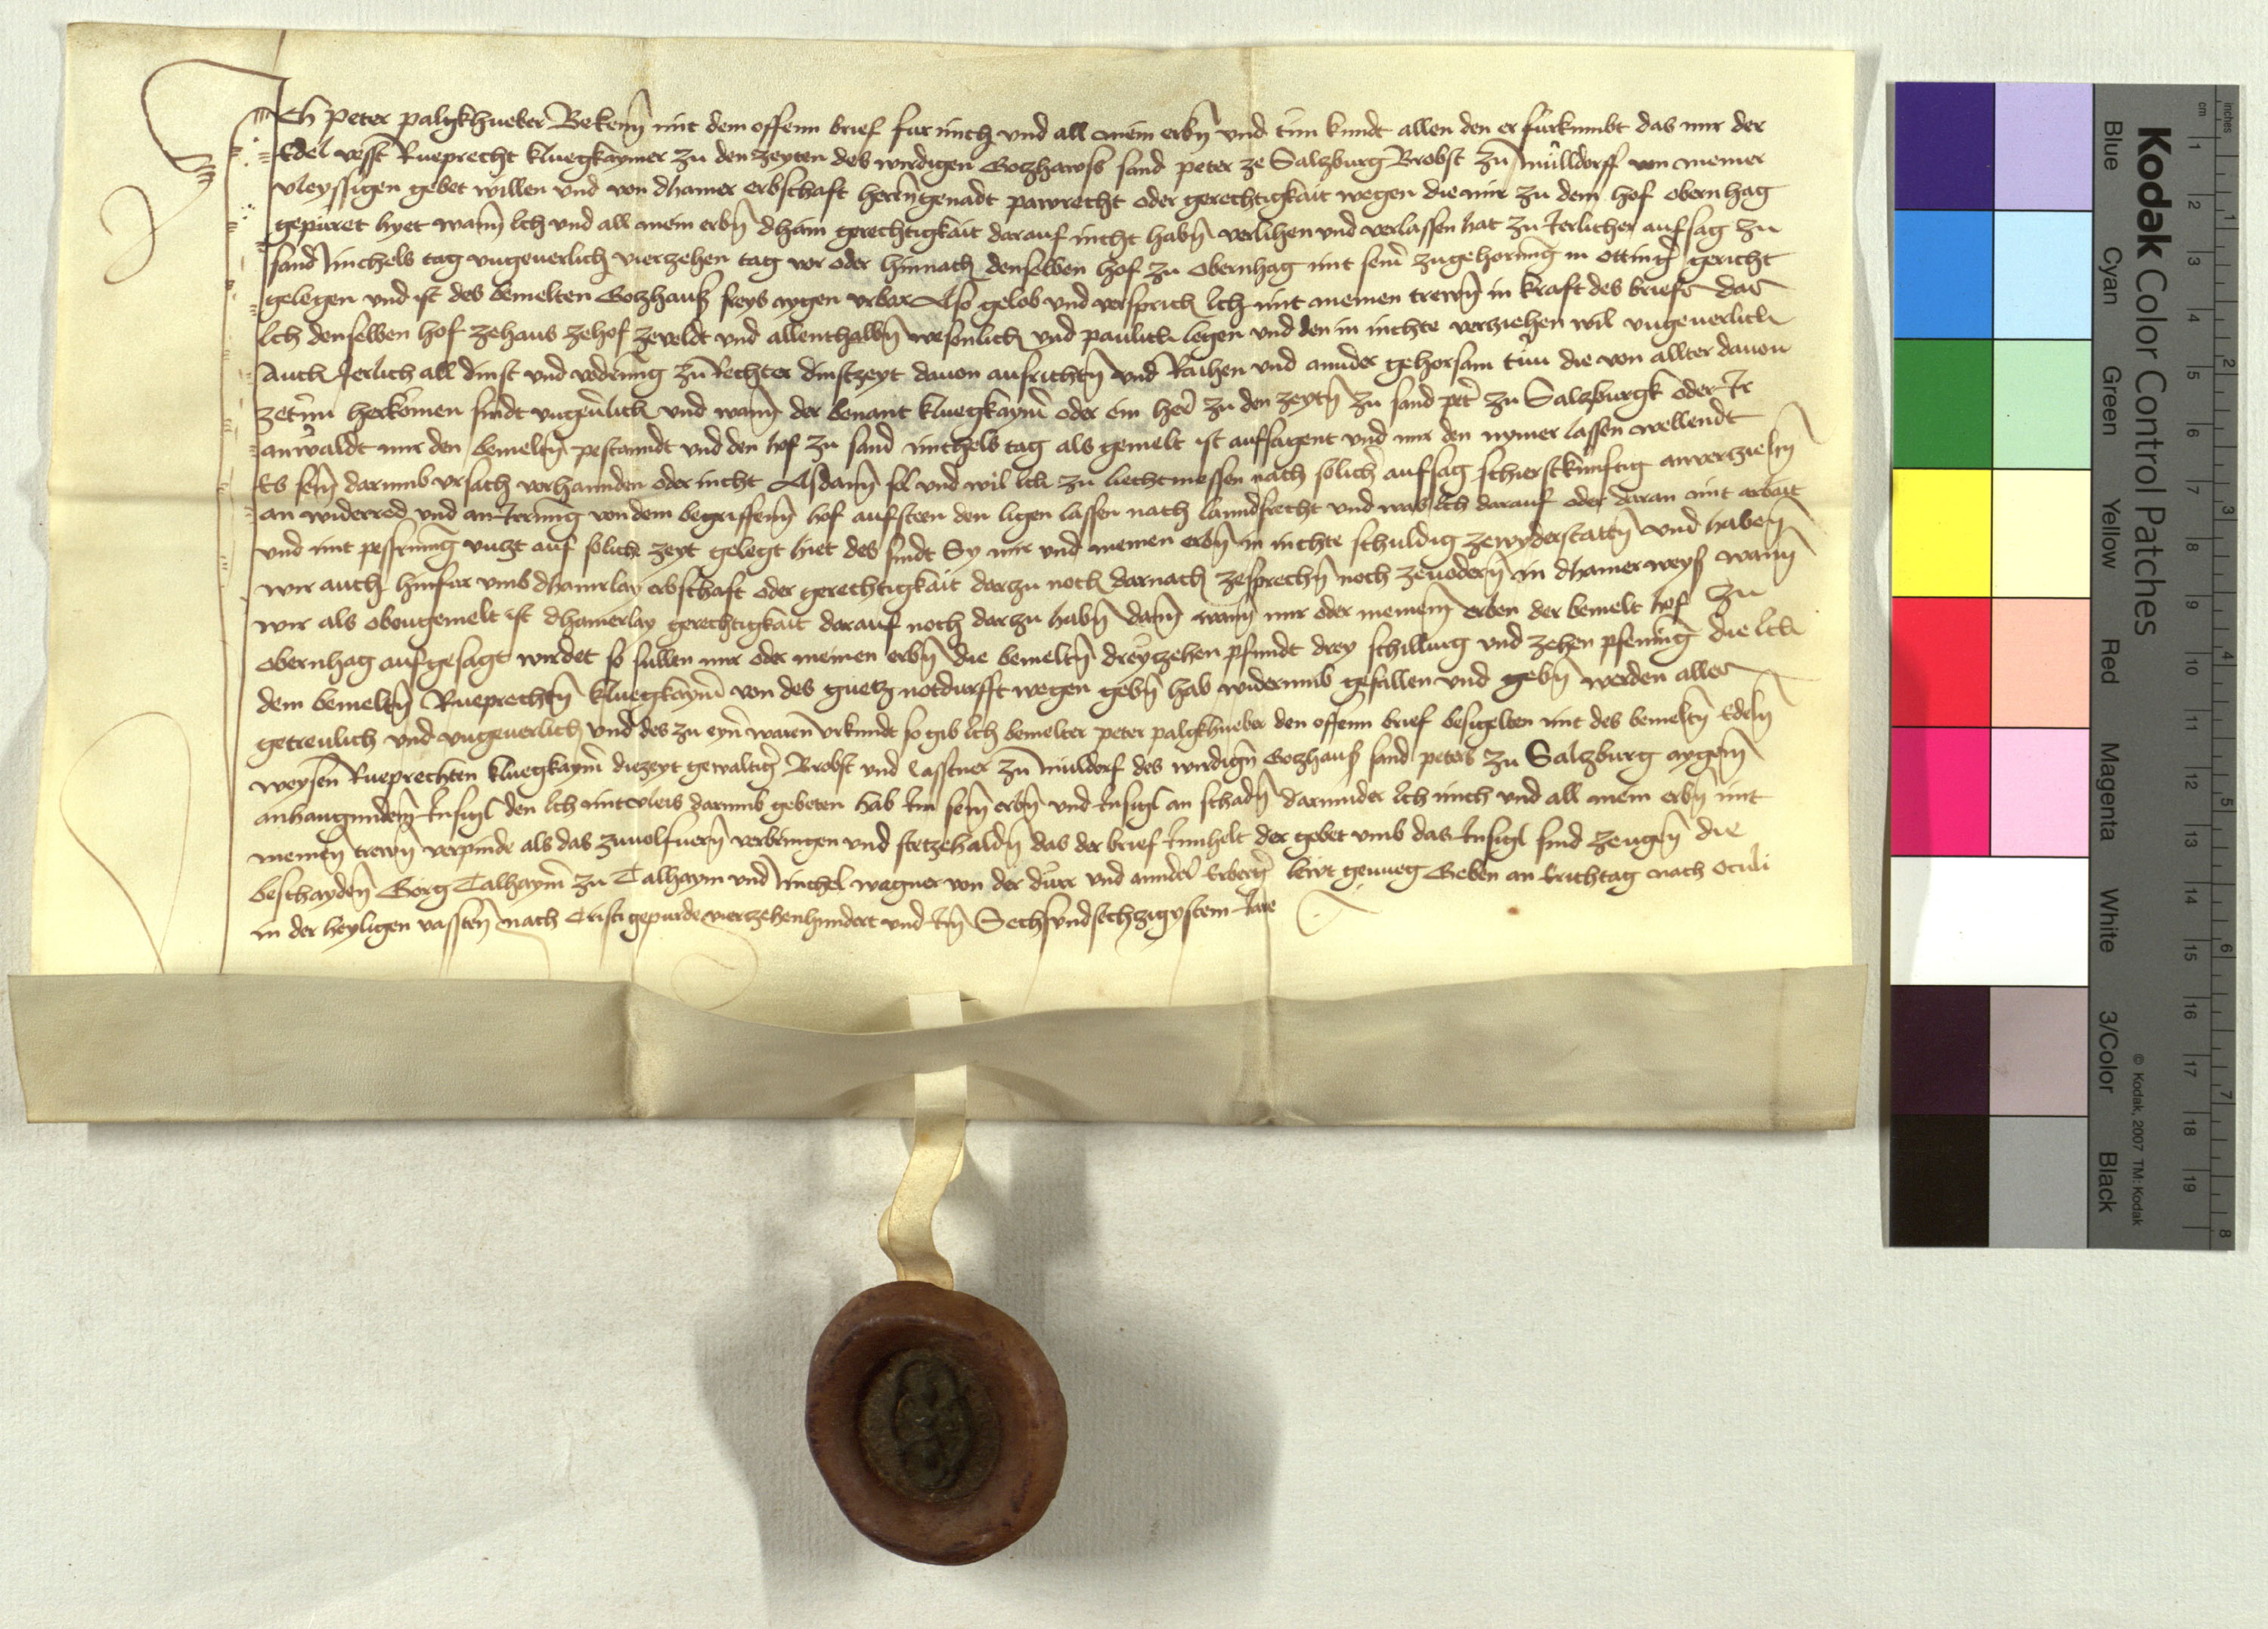 Ich Peter palgkhueber Bekenn mit dem offenn brief fur mich und all mein erbn und tun kundt allen den er furkumbt das mir der
Edel vesst Rueprecht kluegkaymer zu den zeyten des wirdigen Gozhawss sand peter ze Salzburg Brobst zu mülldorff von meiner
vleyssigen gebet willen und von dhainer erbschaft herrngenadt pawrecht oder gerechtigkait wegen die mir zu dem hof obernhag
gepüret hyet wann Ich und all mein erbn dhain gerechtigkait darauf nicht habn verlihen und verlassen hat zu Jerlicher aufsag zu
sand michels tag ungeuerlich vierzehen tag vor oder hinnach denselben hof zu obernhag mit seiner zugehorung in ottinger gericht
gelegen und ist des bemelten Gozhauß freys aygen urbar Also gelob und versprich Ich mit meinen trewn in kraft des briefs das
Ich denselben hof zehaus zehof zeveldt und allenthalbn wesenlich und paulich legen und den in nichte verziehen wil ungeuerlich
Auch Jerlich all dinst und vodrung zu Rechter dinstzeyt dauon aufrichtn und Raihen und annder gehorsam tun die von allter dauon
zetun herkomen sindt ungeuerlich und wann der benant kluegkaymer oder ein herr zu den zeytn zu sand peter zu Salzburgk oder Ir
anwaldt mir den bemeltn pestanndt und den hof zu sand michels tag als gemelt ist aufsagent und mir den nymer lassen wellendt
Es sein darumb ursach vorhannden oder nicht Alsdann sol und wil Ich zu liechtmessen nach solicher aufsag schierstkunftig anverziehn
an widerred und an Irrung von dem begriffenn hof aufsteen den ligen lassen nach lanndsrecht und was Ich darauf oder daran mit arbait
und mit pessrung unczt auf solich zeyt gelegt hiet des sindt Sy mir und meinen erbn in nichte schuldig zewyderstattn und haben
wir auch hinfur umb dhainrlay erbschaft oder gerechtigkait darzu noch darnach zesprechn noch zeuodern in dhainer weyß wann
wir als obengemelt ist dhainerlay gerechtigkait darauf noch darzu habn dann wann mir oder meinenn erben der bemelt hof zu
obernhag aufgesagt wirdet so sullen mir oder meinen erbn die bemeltn dreyzehen pfundt drey schilling und zehen pfening die Ich
dem bemeltn Rueprechtn kluegkaymer von des guetz notdurfft wegen gebn hab widerumb gefallen und gebn werden alles
getreulich und ungeuerlich und des zu eyner waren urkundt so gib Ich bemelter peter palgkhueber den offenn brief besigelten mit des bemeltn Edeln
weysen Rueprechten kluegkaymer diezeyt gewaltiger Brobst und Casstner zu müldorf des wirdign Gozhauß sand peters zu Salzburg aygenn
anhangundem Insigl den Ich mit vleis darumb gebeten hab Im sein erbn und Insigl an schadn darunder Ich mich und all mein erbn mit
meinen trewn verpinde als das zuuolfuern verbringen und stetzehaldn das der brief Innhelt der gebet umb das Insigl sind zeugen die
beschaydenn Görg Talhaymer zu Talhaym und michel wagner von der dürr und annder Erberger lewt genueg Geben an Erichtag nach oculi
in der heyligen vassten nach Cristi gepurde vierzehenhundert und Im Sechsundsechzigystem Jare
Kodak Color Control Patches
Blue Cyan Green Yellow Red Magenta White 3/Color Black
© Kodak, 2007 TM: Kodak
cm 1 2 3 4 5 6 7 8 9 10 11 12 13 14 15 16 17 18 19
inches 1 2 3 4 5 6 7 8